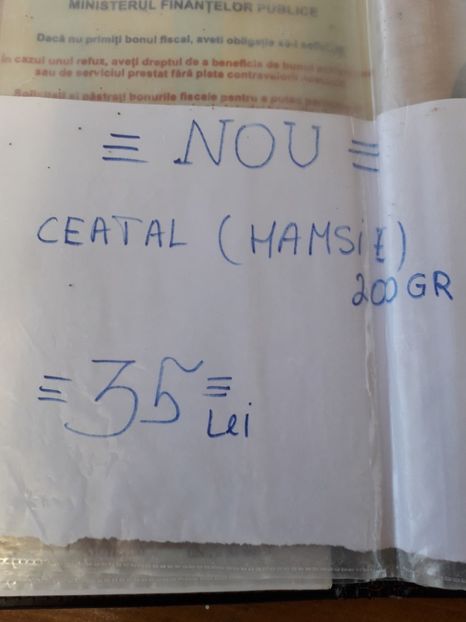 MINISTERUL FINANȚELOR PUBLICE
Dacă nu primiți bonul fiscal, aveți obligația să-l solicitați
În cazul unui refuz, aveți dreptul de a beneficia de bunul
sau de serviciul prestat fără plata contravalorii
Solicitați și păstrați bonurile fiscale pentru a putea
≡ NOU ≡
CEATAL (HAMSIE)
200 GR
≡ 35 ≡
Lei